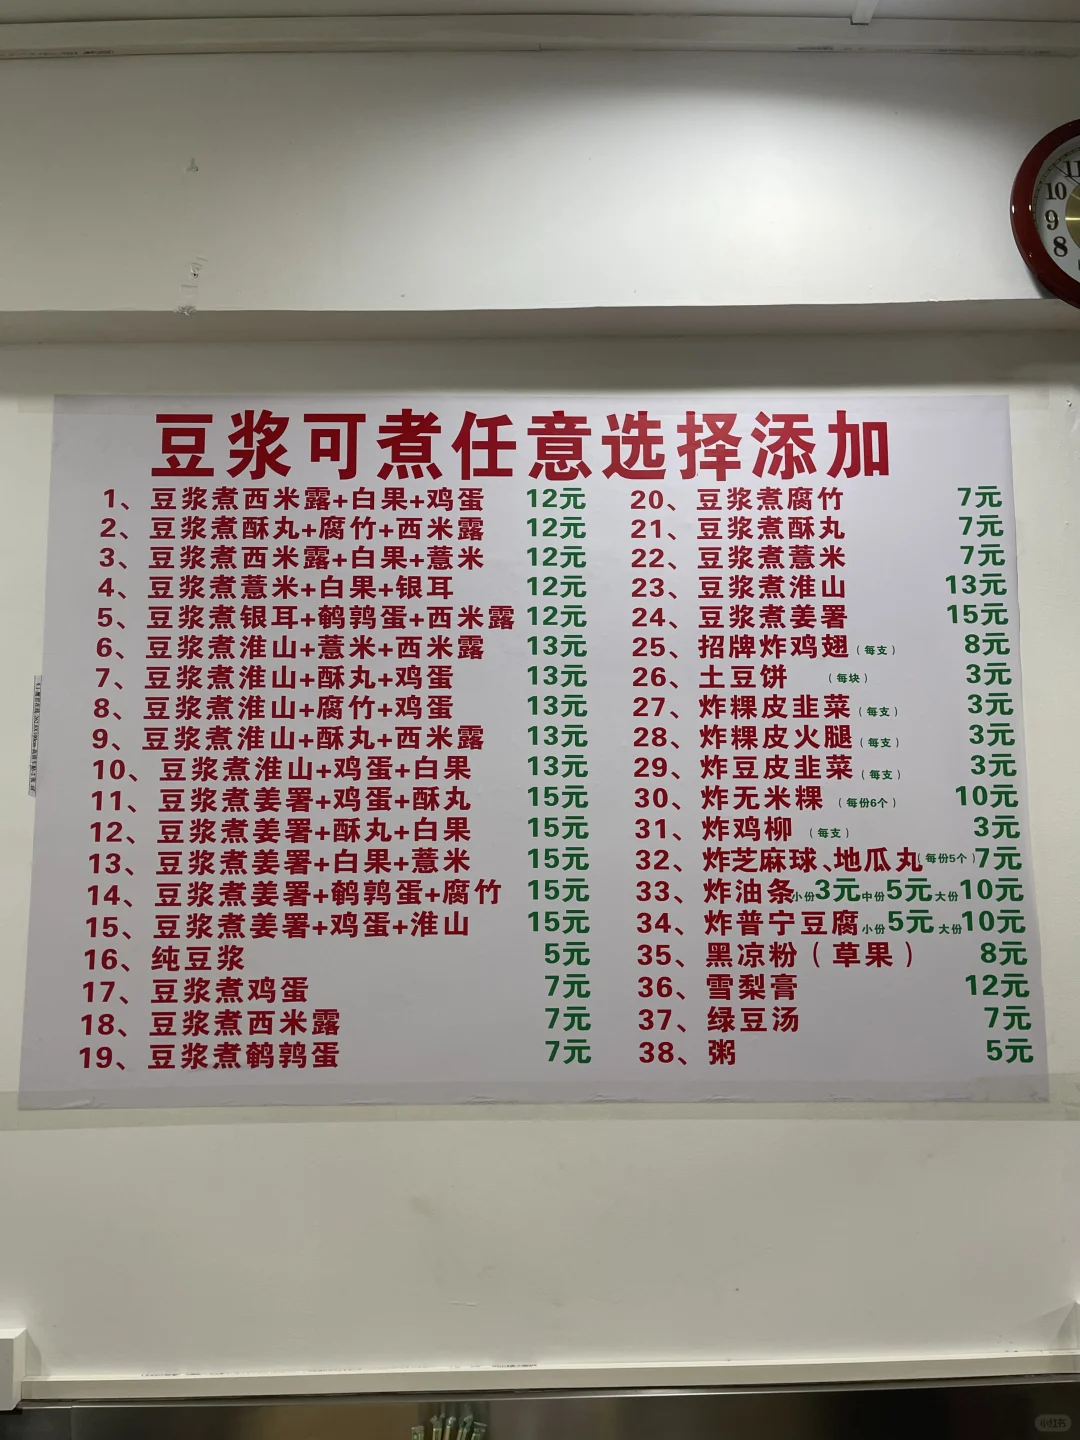 豆浆可煮任意选择添加
1、豆浆煮西米露+白果+鸡蛋 12元
2、豆浆煮酥丸+腐竹+西米露 12元
3、豆浆煮西米露+白果+薏米 12元
4、豆浆煮薏米+白果+银耳 12元
5、豆浆煮银耳+鹌鹑蛋+西米露 12元
6、豆浆煮淮山+薏米+西米露 13元
7、豆浆煮淮山+酥丸+鸡蛋 13元
8、豆浆煮淮山+腐竹+鸡蛋 13元
9、豆浆煮淮山+酥丸+西米露 13元
10、豆浆煮淮山+鸡蛋+白果 13元
11、豆浆煮姜署+鸡蛋+酥丸 15元
12、豆浆煮姜署+酥丸+白果 15元
13、豆浆煮姜署+白果+薏米 15元
14、豆浆煮姜署+鹌鹑蛋+腐竹 15元
15、豆浆煮姜署+鸡蛋+淮山 15元
16、纯豆浆 5元
17、豆浆煮鸡蛋 7元
18、豆浆煮西米露 7元
19、豆浆煮鹌鹑蛋 7元
20、豆浆煮腐竹 7元
21、豆浆煮酥丸 7元
22、豆浆煮薏米 7元
23、豆浆煮淮山 13元
24、豆浆煮姜署 15元
25、招牌炸鸡翅（每支） 8元
26、土豆饼（每块） 3元
27、炸粿皮韭菜（每支） 3元
28、炸粿皮火腿（每支） 3元
29、炸豆皮韭菜（每支） 3元
30、炸无米粿（每份6个） 10元
31、炸鸡柳（每支） 3元
32、炸芝麻球、地瓜丸（每份5个） 7元
33、炸油条小份3元中份5元大份10元
34、炸普宁豆腐小份5元大份10元
35、黑凉粉（草果） 8元
36、雪梨膏 12元
37、绿豆汤 7元
38、粥 5元
11
10
9
8
小红书